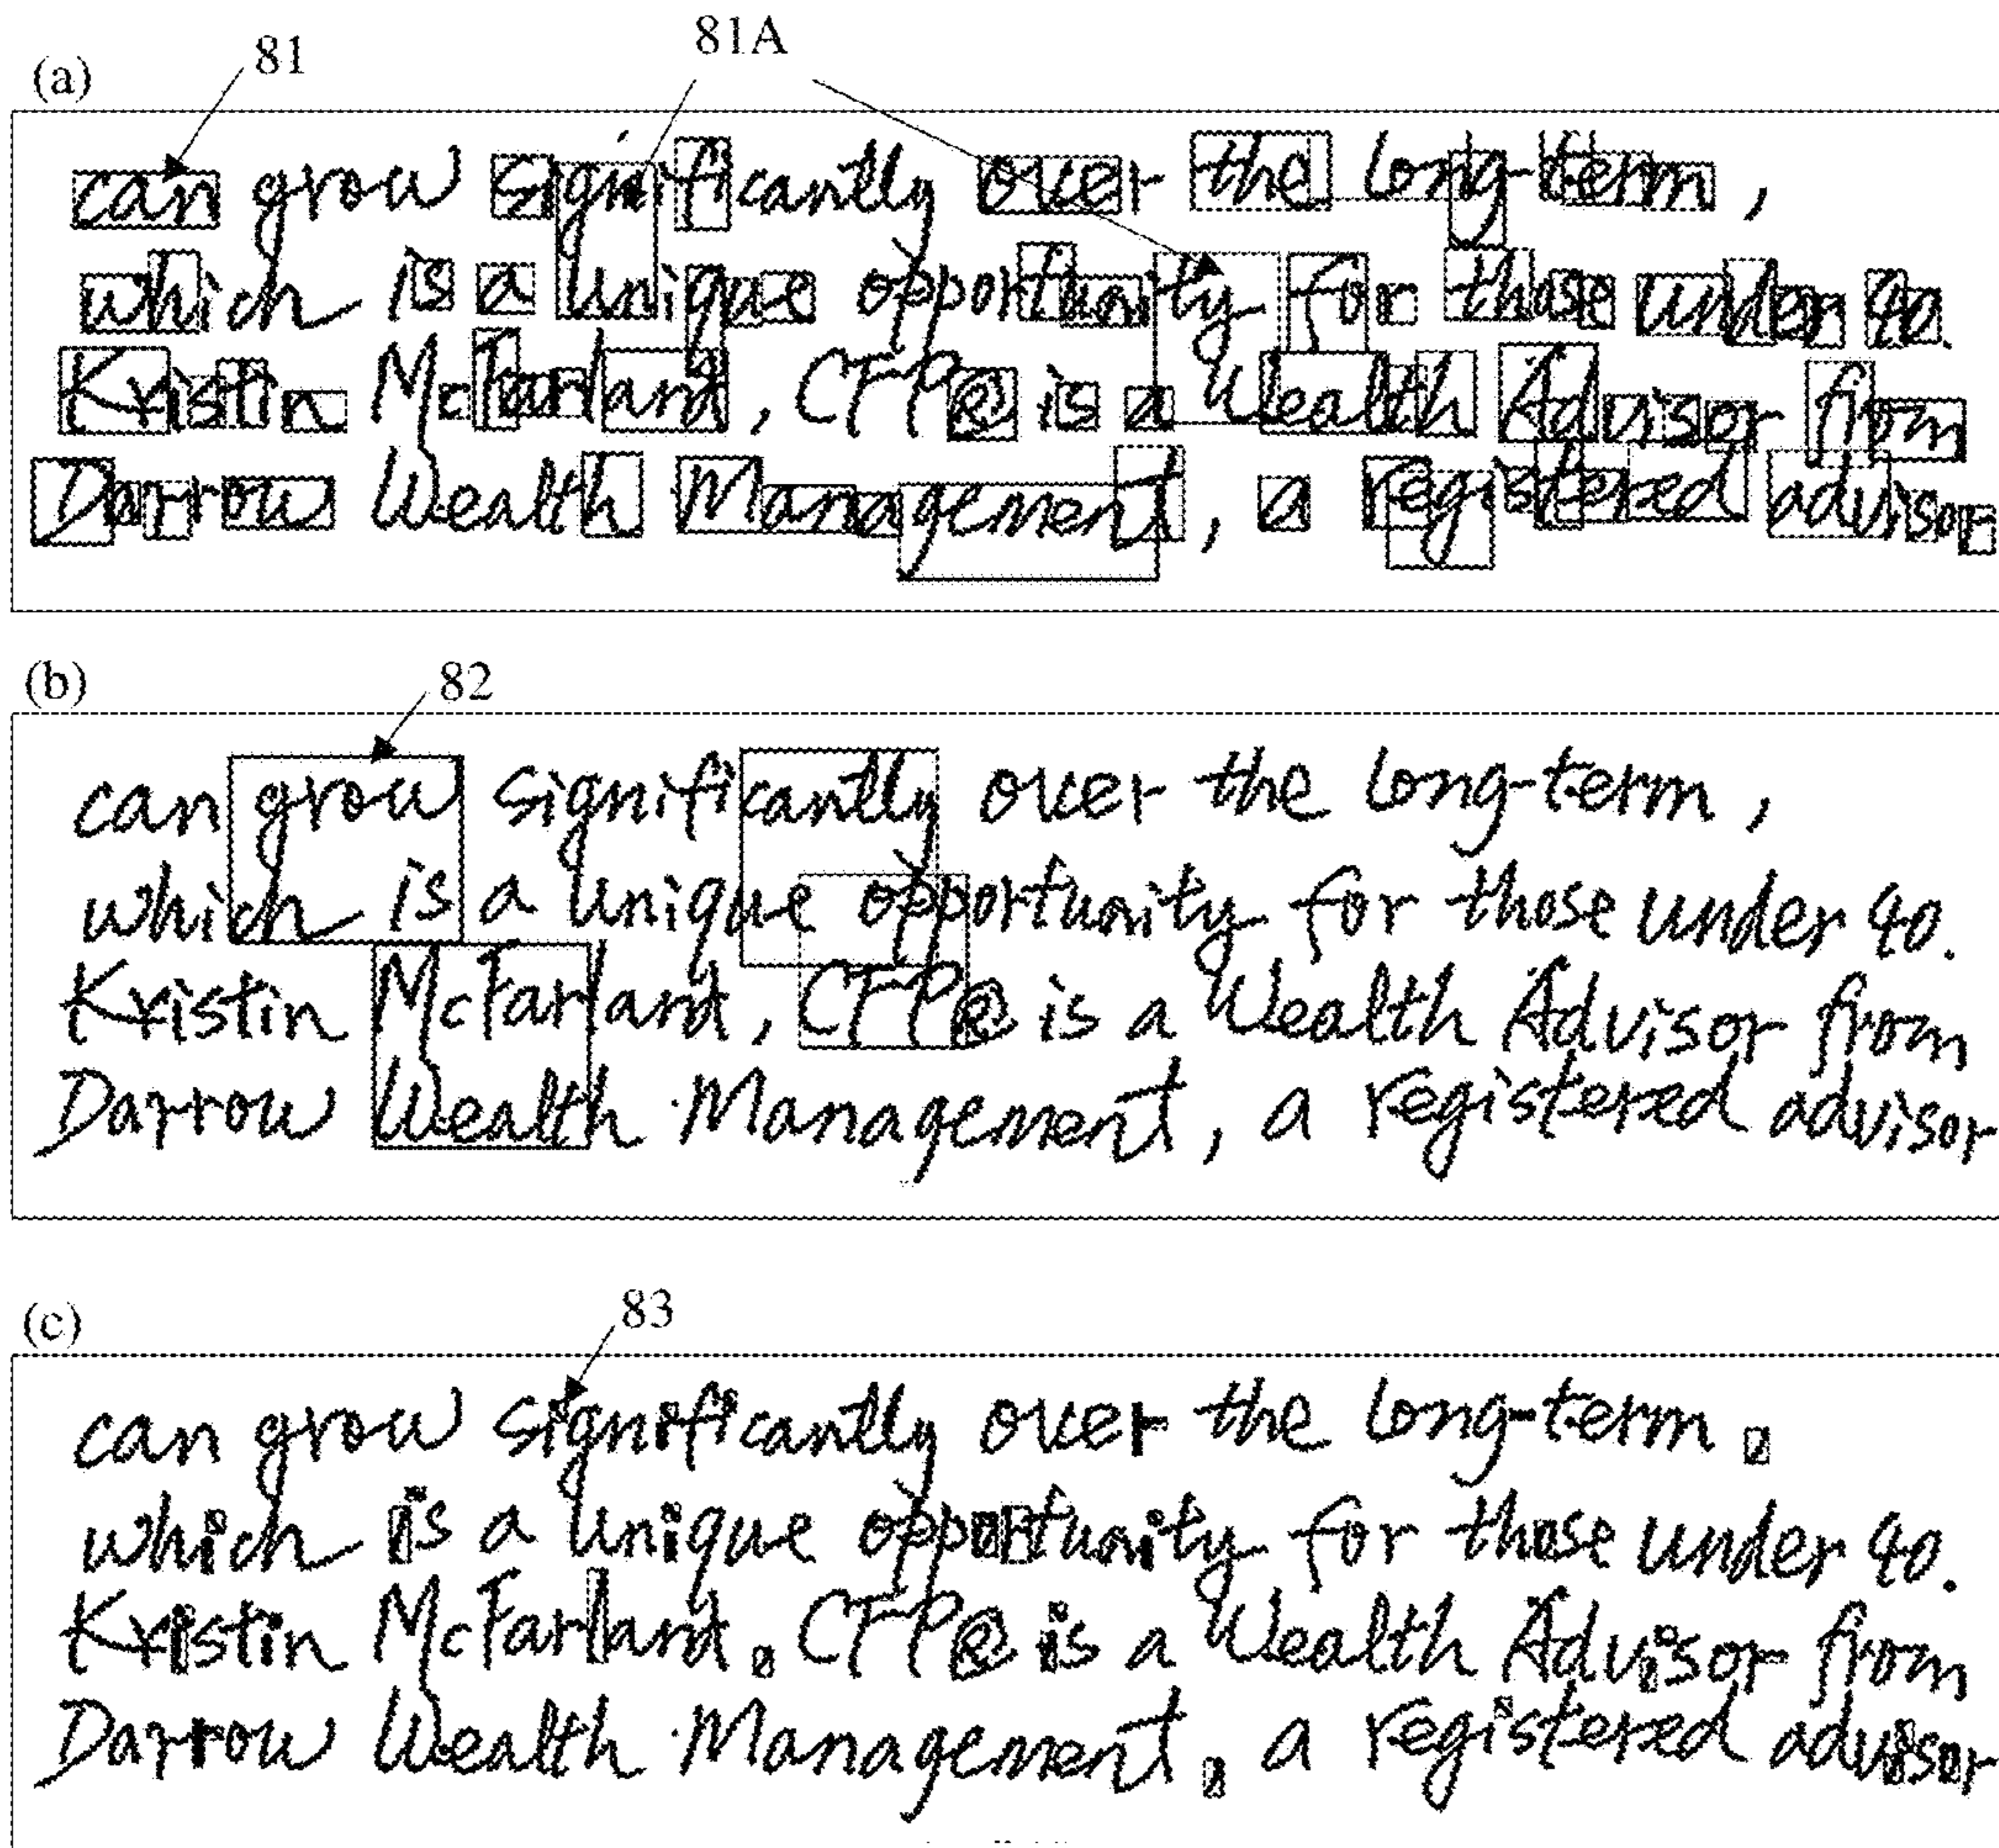 81
81A
(a)
can grow significantly over the long-term,
which is a unique opportunity for those under 40.
Kristin McFarland, CFP® is a Wealth Advisor from
Darrow Wealth Management, a registered advisor
82
(b)
can grow significantly over the long-term,
which is a unique opportunity for those under 40.
Kristin McFarland, CFP® is a Wealth Advisor from
Darrow Wealth Management, a registered advisor
83
(c)
can grow significantly over the long-term,
which is a unique opportunity for those under 40.
Kristin McFarland, CFP® is a Wealth Advisor from
Darrow Wealth Management, a registered advisor